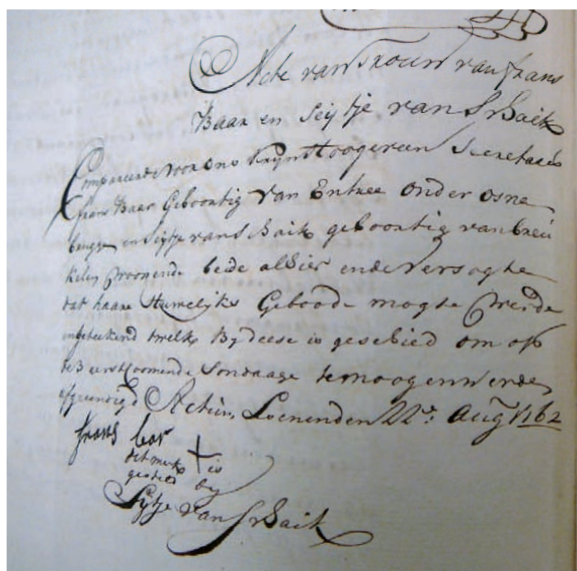 Acte van Trouw van frans
Baar en Seijtje van Schaik
Compareerde voor ons Krijn Hoogeveen Secretaris
frans Baar Geboortig van Entree onder osna
brugge en Seijtje van Schaik geboortig van breu
kelen woonende bede alhier ende versogte
dat haare Huwelijks Geboode mogte werde
ingeteekend twelk Bij deese is geschied om op
te Eerstkoomende Sondaage te moogen werde
afgecundigd Actum Loenen den 22e: Aug 1762
frans bar
dit merk + is
gestelt bij
Sijtje van Schaik